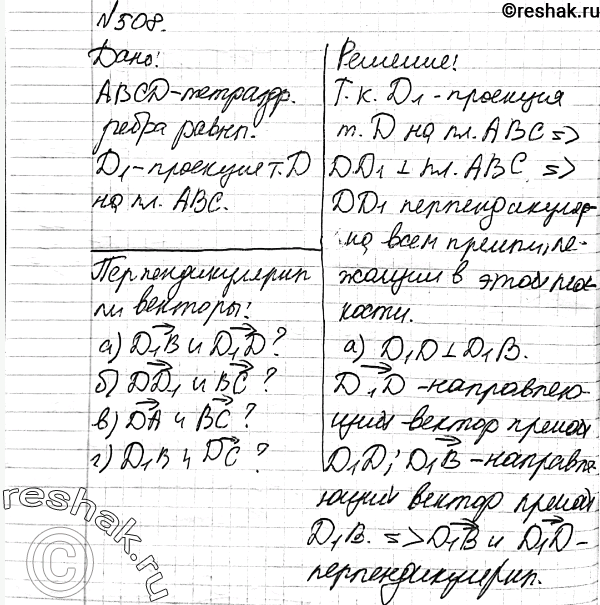 ©reshak.ru
№508.
Дано:
ABCD-тетраэдр.
ребра равны.
D₁-проекция т. D
на пл. ABC.
Перпендикулярны
ли векторы:
а) D₁B и D₁D?
б) DD₁ и BC?
в) DA и BC?
г) D₁B и DC?
Решение:
Т.к. D₁-проекция
т. D на пл. ABC =>
DD₁ ⊥ пл. ABC =>
DD₁ перпендикуляр-
на всем прямым, ле-
жащим в этой плос-
кости.
а) D₁D ⊥ D₁B.
D₁D -направляю-
щий вектор прямой
D₁D; D₁B -направля-
ющий вектор прямой
D₁B. => D₁B и D₁D -
перпендикулярн.
reshak.ru
©